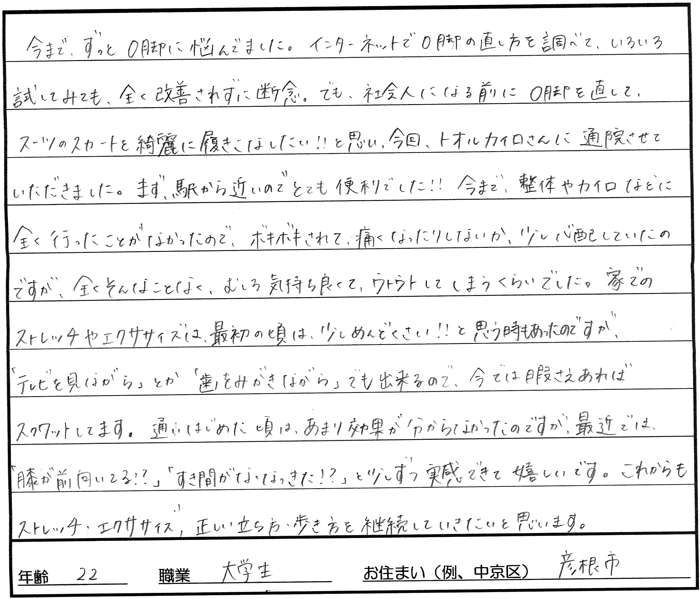 今まで、ずっとO脚に悩んでました。インターネットでO脚の直し方を調べて、いろいろ
試してみても、全く改善されずに断念。でも、社会人になる前にO脚を直して、
スーツのスカートを綺麗に履きこなしたい!!と思い、今回、トオルカイロさんに通院させて
いただきました。まず、駅から近いのでとても便利でした!! 今まで、整体やカイロなどに
全く行ったことがなかったので、ボキボキされて、痛くなったりしないか、少し心配していたの
ですが、全くそんなことなく、むしろ気持ち良くて、ウトウトしてしまうくらいでした。家での
ストレッチやエクササイズは、最初の頃は、少しめんどくさい!!と思う時もあったのですが、
「テレビを見ながら」とか「歯をみがきながら」でも出来るので、今では暇さえあれば
スクワットしてます。通いはじめた頃は、あまり効果が分からなかったのですが、最近では、
「膝が前向いてる!?」「すき間がなくなってきた!?」と少しずつ実感できて嬉しいです。これからも
ストレッチ・エクササイズ、正しい立ち方・歩き方を継続していきたいと思います。
年齢 22 職業 大学生 お住まい(例、中京区) 彦根市